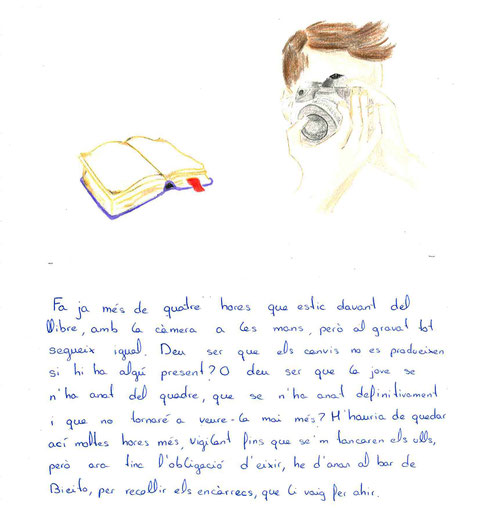 Fa ja més de quatre hores que estic davant del
llibre, amb la càmera a les mans, però al gravat tot
segueix igual. Deu ser que els canvis no es produeixen
si hi ha algú present? O deu ser que la jove se
n'ha anat del quadre, que se n'ha anat definitivament
i que no tornaré a veure-la mai més? M'hauria de quedar
ací moltes hores més, vigilant fins que se'm tancaren els ulls,
però ara tinc l'obligació d'eixir, he d'anar al bar de
Bieito, per recollir els encàrrecs, que li vaig fer ahir.